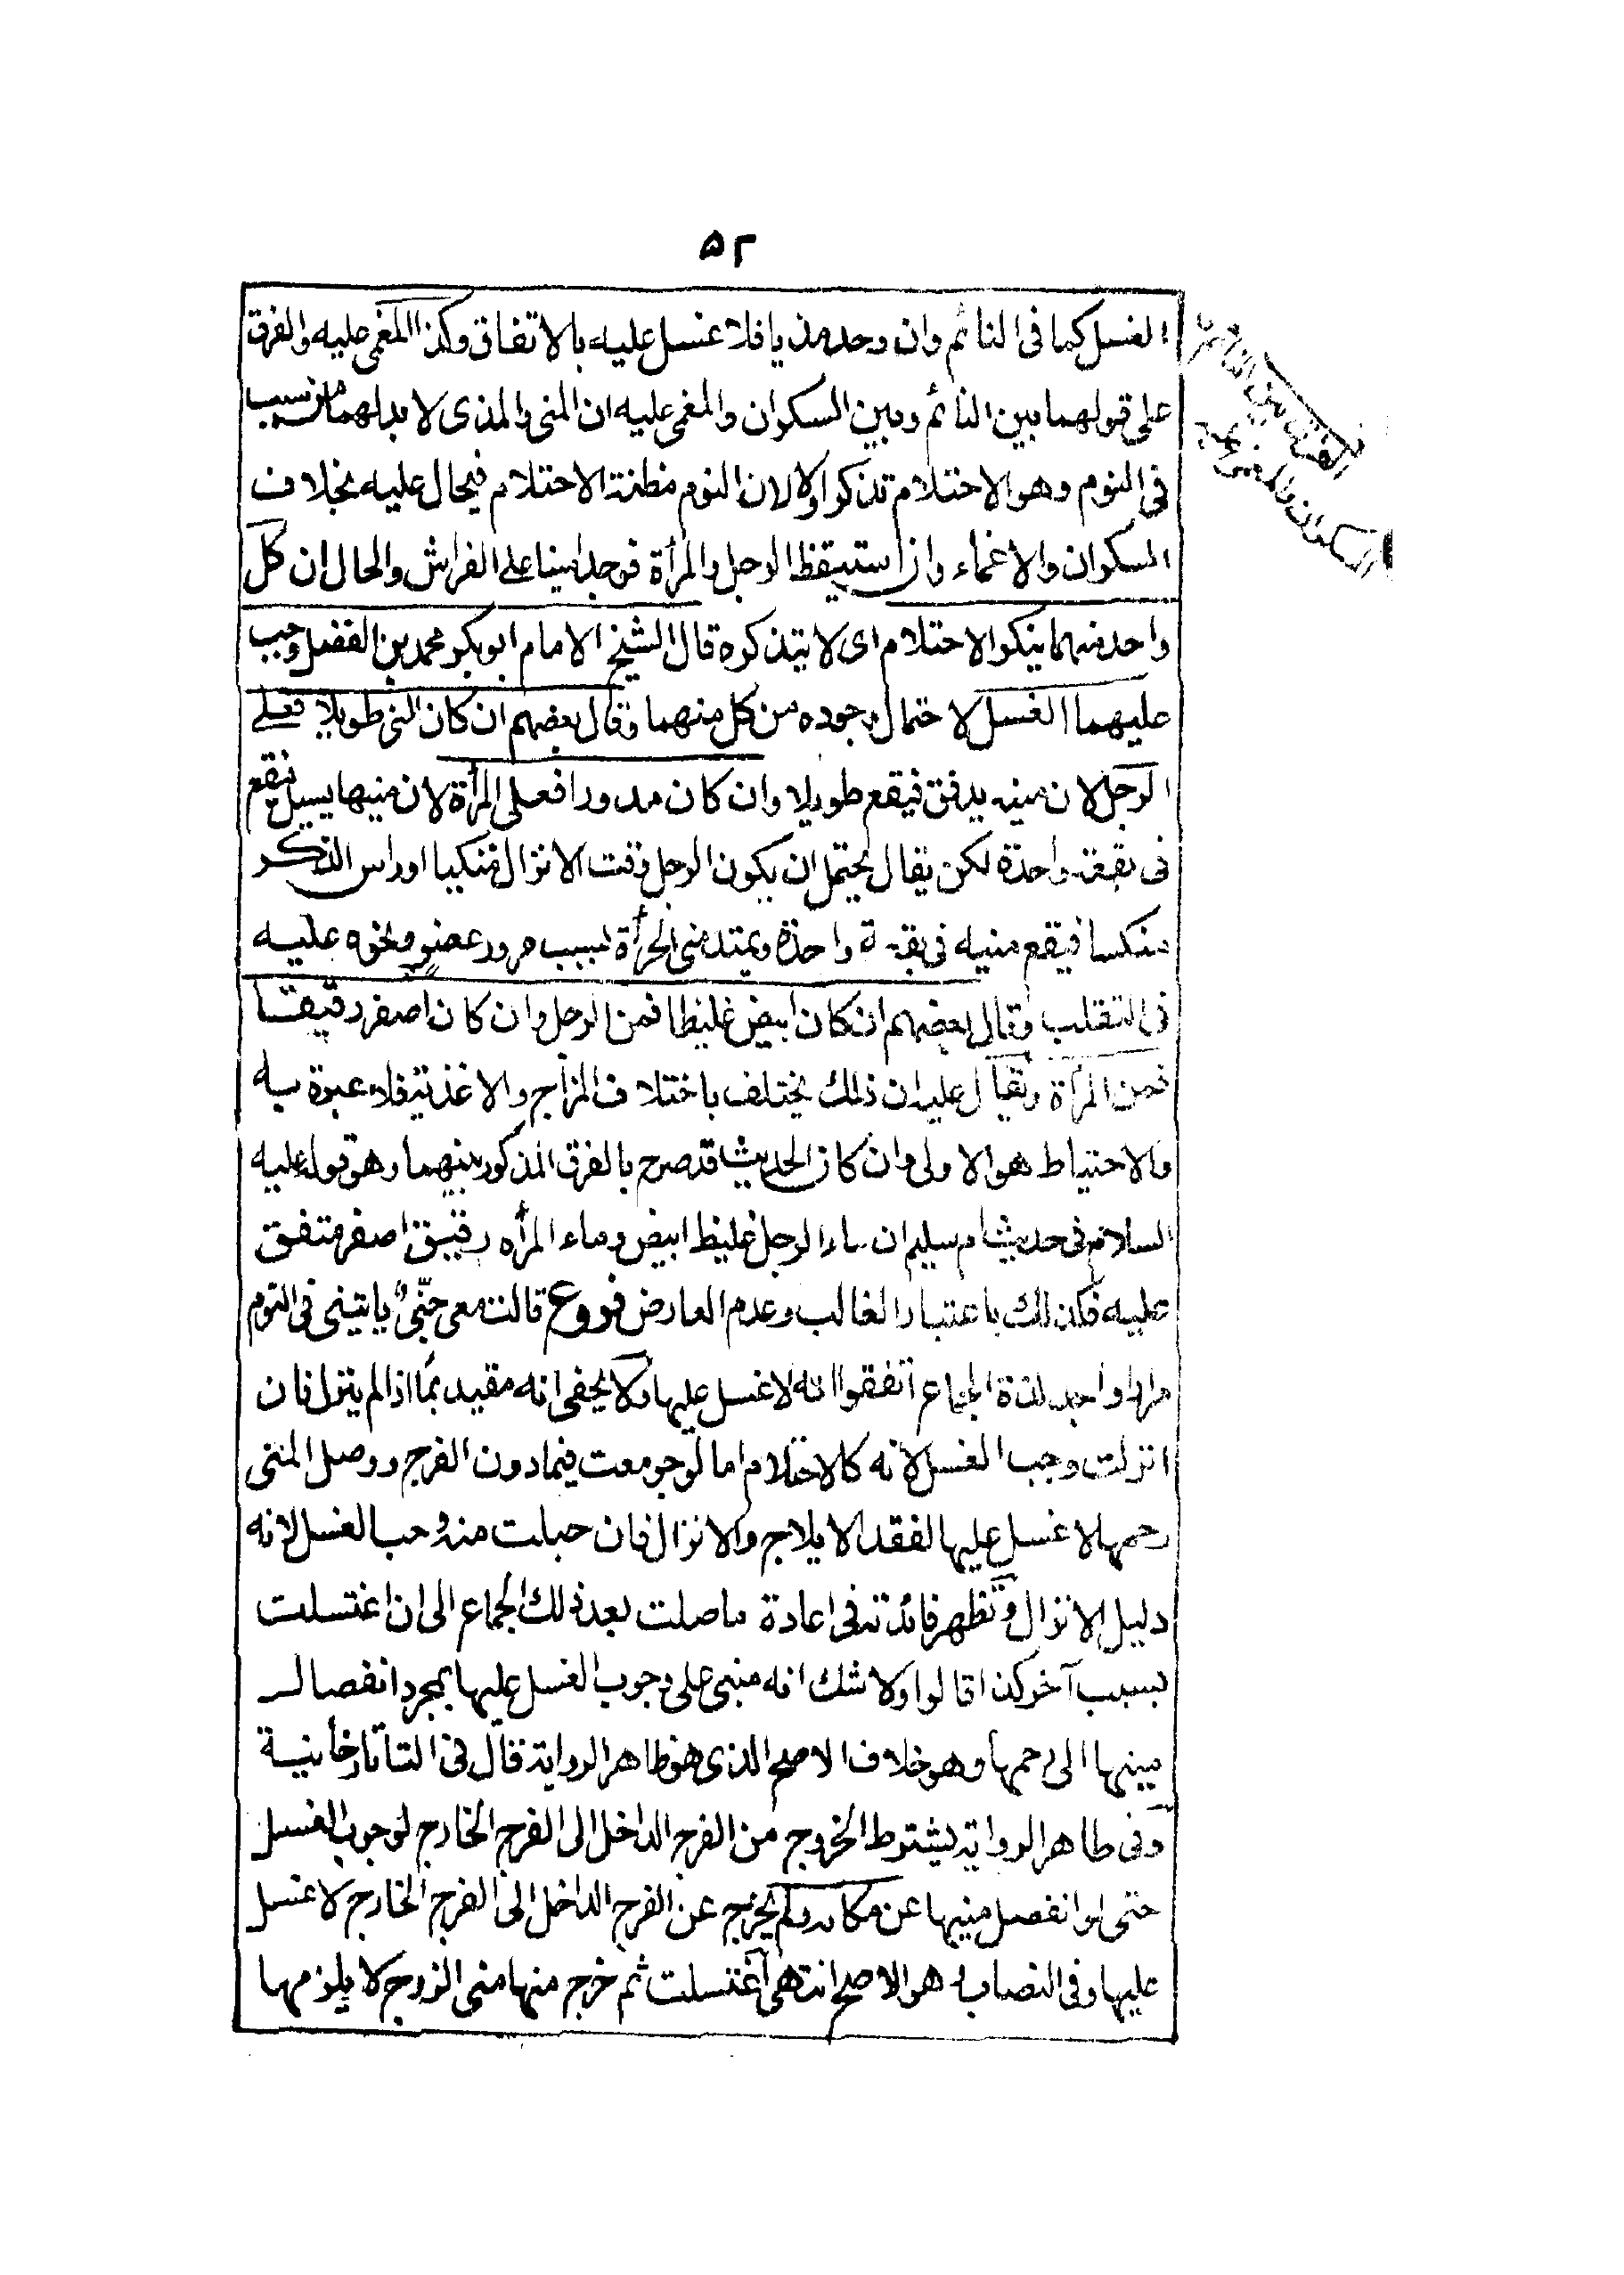 ٥٢
الغسل كما فى النائم وان وجد مذيا فلا غسل عليه بالاتفاق وكذا المغمى عليه والفرق
على قولهما بين النائم وبين السكران والمغمى عليه ان المنى والمذى لا بد لهما من سبب
فى النوم وهو الاحتلام تذكر اولا لان النوم مظنة الاحتلام فيحال عليه بخلاف
السكران والاغماء وان استيقظ الرجل والمرأة فوجدا منيا على الفراش والحال ان كل
واحد منهما ينكر الاحتلام اى لا يتذكره قال الشيخ الامام ابو بكر محمد بن الفضل وجب
عليهما الغسل لاحتمال وجوده من كل منهما وقال بعضهم ان كان المنى طويلا فعلى
الرجل لان منيه يدفق فيقع طويلا وان كان مدورا فعلى المرأة لان منيها يسيل فيقع
فى بقعة واحدة لكن يقال يحتمل ان يكون الرجل وقت الانزال منكبا او راس الذكر
منكسا فيقع منيه فى بقعة واحدة ويمتد منى المرأة بسبب مرور عضو ونحوه عليه
فى التقلب وقال بعضهم ان كان ابيض غليظا فمن الرجل وان كان اصفر رقيقا
فمن المرأة ويقال عليه ان ذلك يختلف باختلاف المزاج والاغذية فلا عبرة به
والاحتياط هو الاولى وان كان الحديث قد صرح بالفرق المذكور بينهما وهو قوله عليه
السلام فى حديث ام سليم ان ماء الرجل غليظ ابيض وماء المرأه رقيق اصفر متفق
عليه فكن ذلك باعتبار الغالب وعدم العارض فروع قالت معى جنّىٌ ياتينى فى النوم
مرارا واجد لذة الجماع اتفقوا انه لا غسل عليها ولا يخفى انه مقيد بما اذا لم ينزل فان
انزلت وجب الغسل لانه كالاحتلام اما لو جومعت فيما دون الفرج ووصل المنى
رحمها لا غسل عليها لفقد الايلاج والانزال فان حبلت منه وجب الغسل لانه
دليل الانزال وتظهر فائدته فى اعادة ما صلت بعد ذلك الجماع الى ان اغتسلت
بسبب آخر كذا قالوا ولا شك انه مبنى على وجوب الغسل عليها بمجرد انفصال
منيها الى رحمها وهو خلاف الاصح الذى هو ظاهر الرواية قال فى التاتارخانية
وفى ظاهر الرواية يشترط الخروج من الفرج الداخل الى الفرج الخارج لوجوب الغسل
حتى لو انفصل منيها عن مكانه ولم يخرج عن الفرج الداخل الى الفرج الخارج لا غسل
عليها وفى النصاب هو الاصح انتهى اغتسلت ثم خرج منها منى الزوج لا يلزمها
الفرق بين النائم
السكران والمغمى عليه